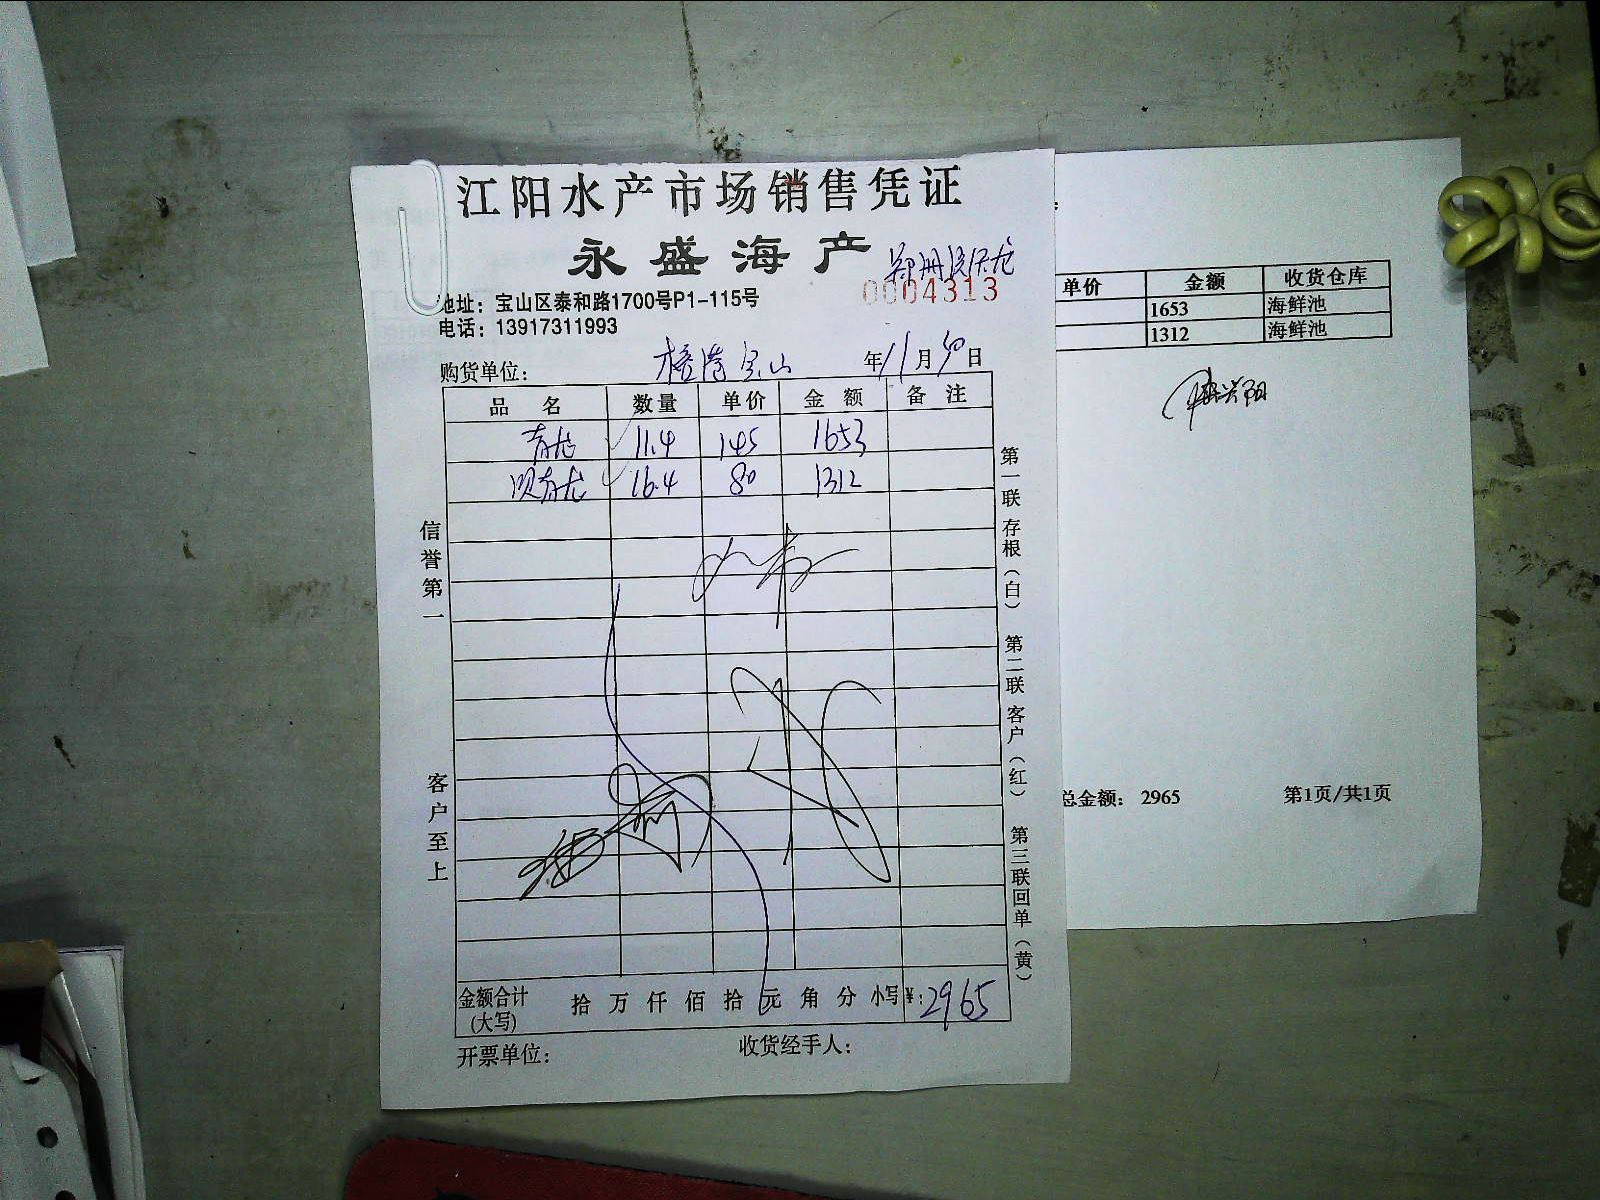 江阳水产市场销售凭证
永盛海产
0004313
地址：宝山区泰和路1700号P1-115号
电话：13917311993
购货单位： 宝山 年11月 日
品名 数量 单价 金额 备注
青龙 11.4 145 1653
青龙 16.4 80 1312
信誉第一 客户至上
第一联存根（白） 第二联客户（红） 第三联回单（黄）
金额合计（大写） 拾 万 仟 佰 拾 元 角 分 小写¥：2965
开票单位： 收货经手人：
单价 金额 收货仓库
1653 海鲜池
1312 海鲜池
总金额： 2965 第1页/共1页